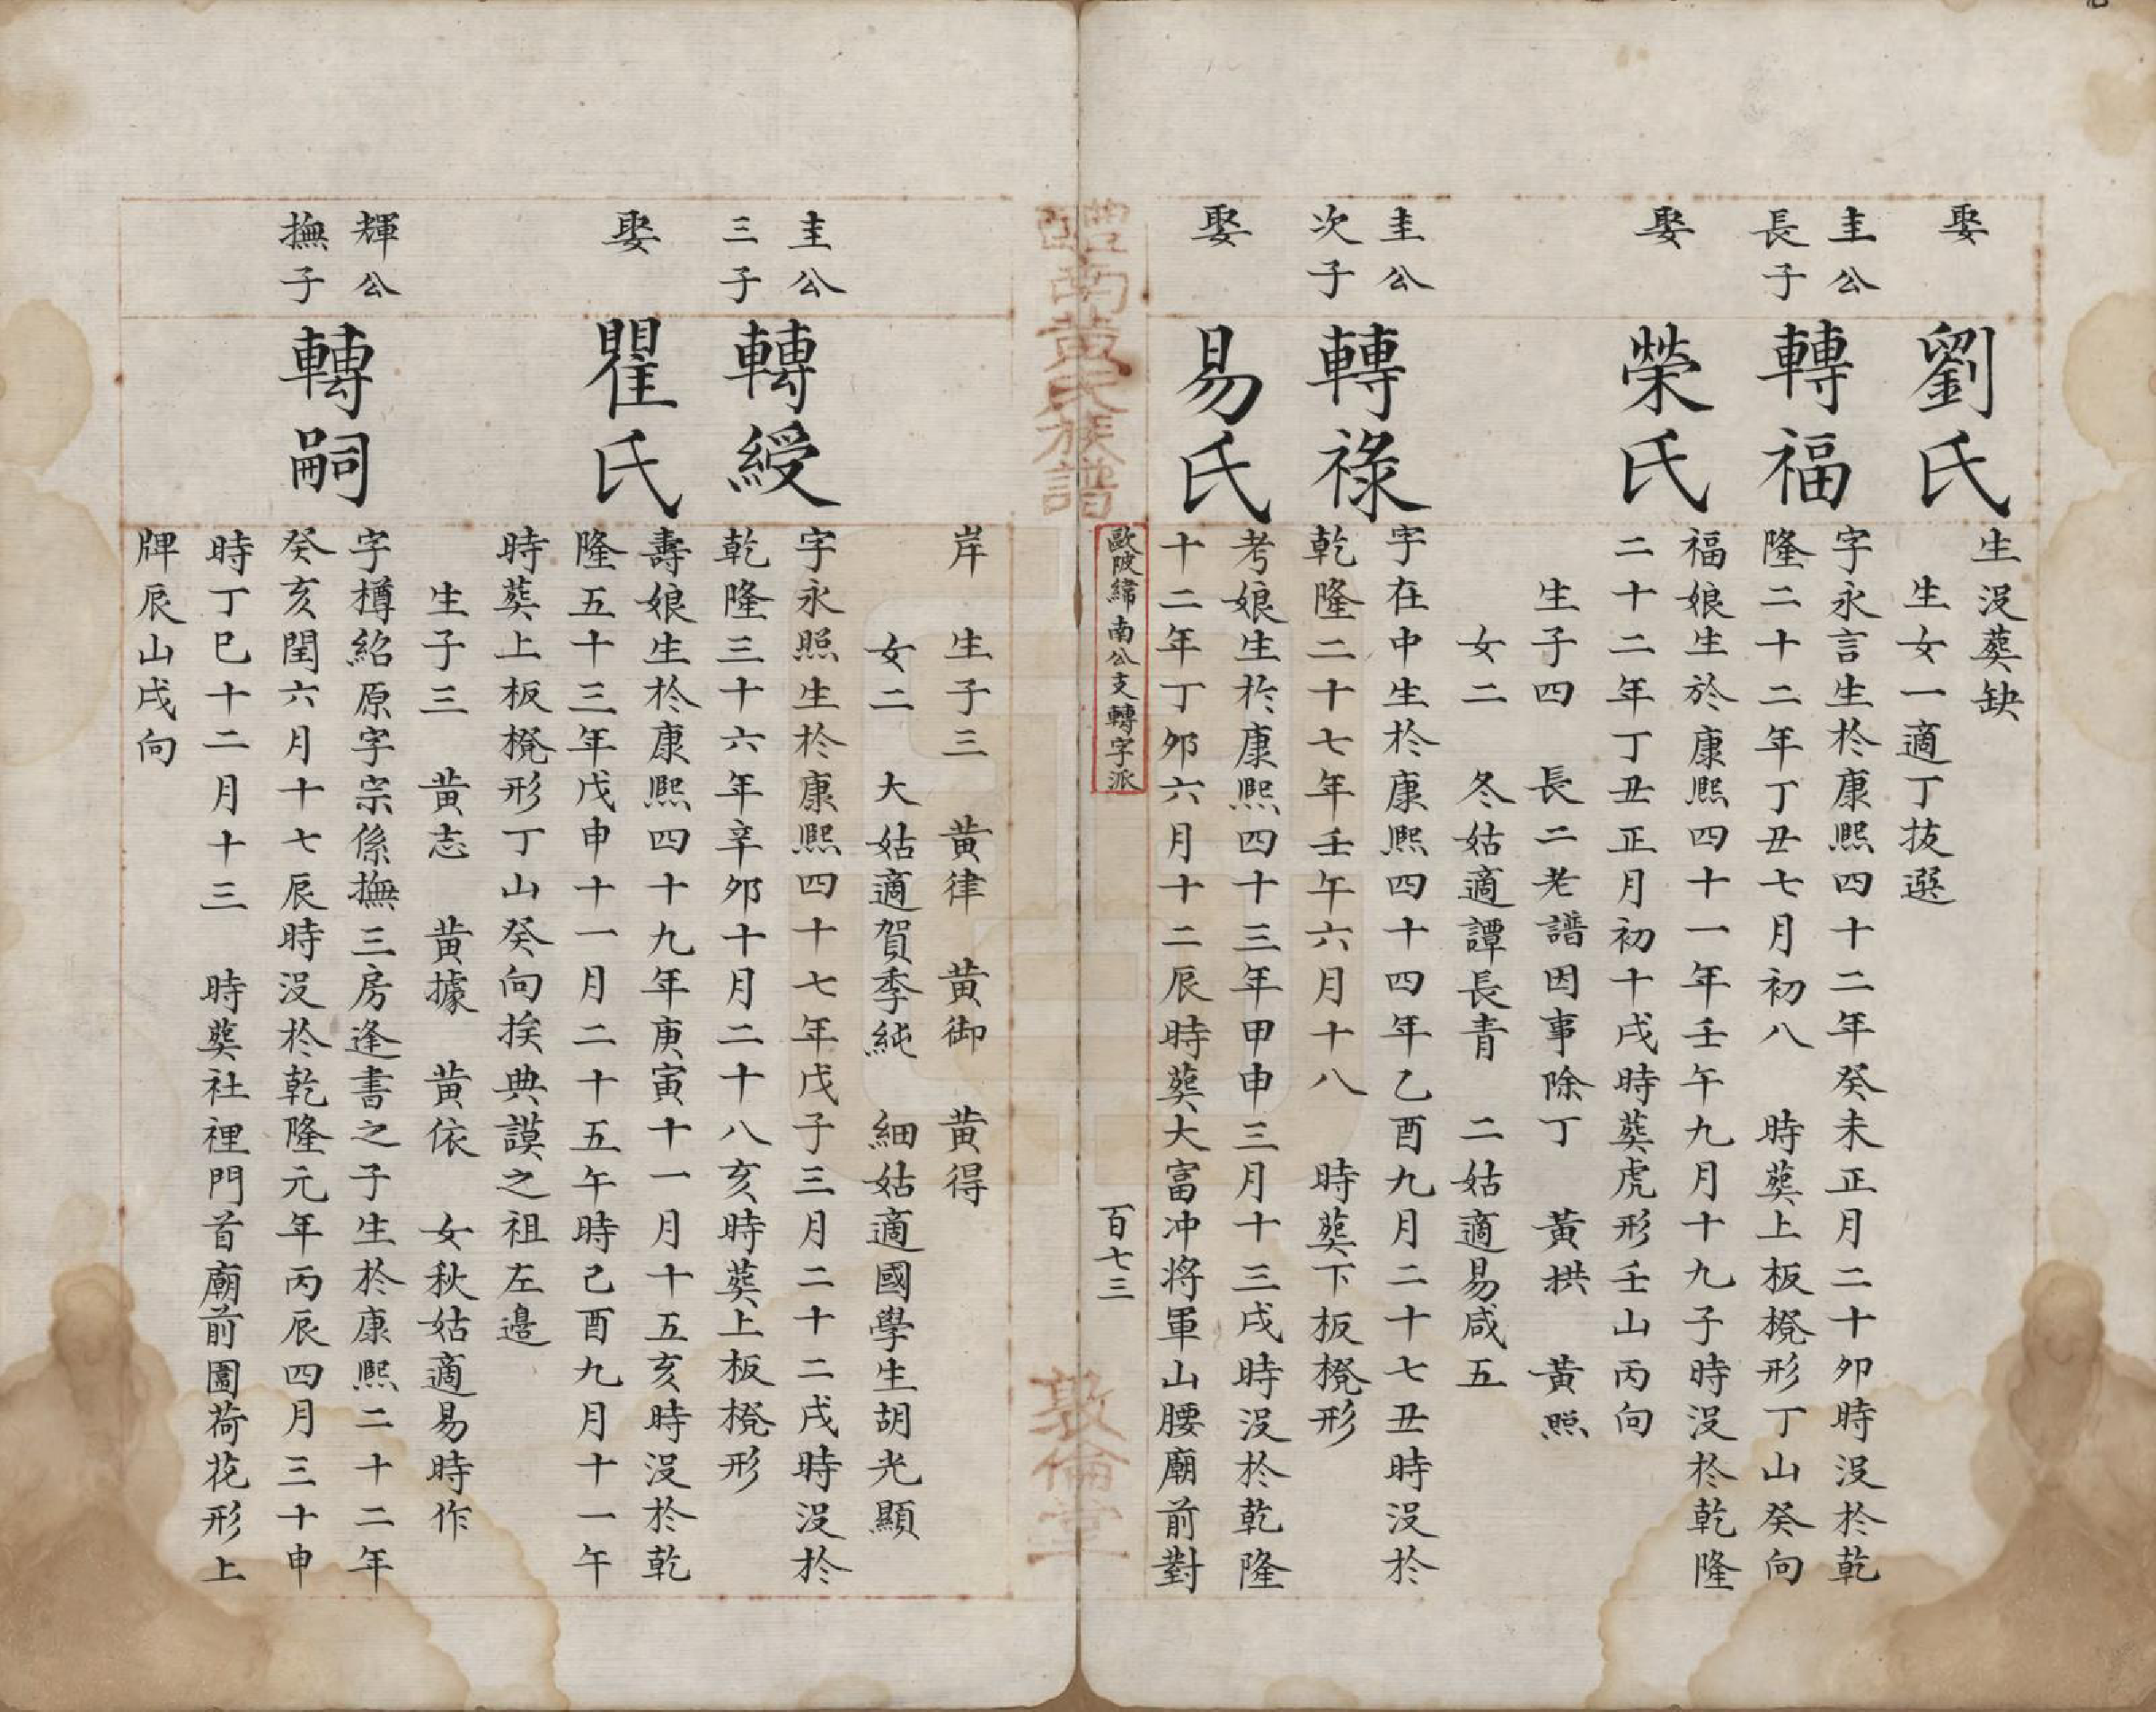 娶
劉氏
生沒葬缺
生女一適丁拔選
圭公
長子
轉福
字永言生於康熙四十二年癸未正月二十卯時沒於乾
隆二十二年丁丑七月初八 時葬上板櫈形丁山癸向
娶
榮氏
福娘生於康熙四十一年壬午九月十九子時沒於乾隆
二十二年丁丑正月初十戌時葬虎形壬山丙向
生子四 長二老譜因事除丁 黃拱 黃照
女二 冬姑適譚長青 二姑適易咸五
圭公
次子
轉祿
字在中生於康熙四十四年乙酉九月二十七丑時沒於
乾隆二十七年壬午六月十八 時葬下板櫈形
娶
易氏
考娘生於康熙四十三年甲申三月十三戌時沒於乾隆
十二年丁夘六月十二辰時葬大富冲将軍山腰廟前對
歐陂緯南公支轉字派
百七三
醴南黄氏族譜
敦倫堂
岸 生子三 黃律 黃御 黃得
女二 大姑適賀季純 細姑適國學生胡光顯
圭公
三子
轉綬
字永照生於康熙四十七年戊子三月二十二戌時沒於
乾隆三十六年辛夘十月二十八亥時葬上板櫈形
娶
瞿氏
壽娘生於康熙四十九年庚寅十一月十五亥時沒於乾
隆五十三年戊申十一月二十五午時己酉九月十一午
時葬上板櫈形丁山癸向挨典謨之祖左邊
生子三 黃志 黃據 黃依 女秋姑適易時作
輝公
撫子
轉嗣
字樽紹原字宗係撫三房逢書之子生於康熙二十二年
癸亥閏六月十七辰時沒於乾隆元年丙辰四月三十申
時丁巳十二月十三 時葬社裡門首廟前園荷花形上
牌辰山戌向